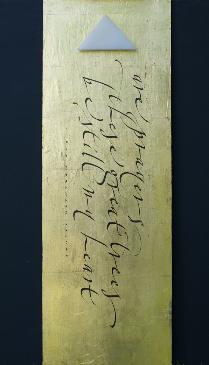 are prayers
these great trees
be still my heart